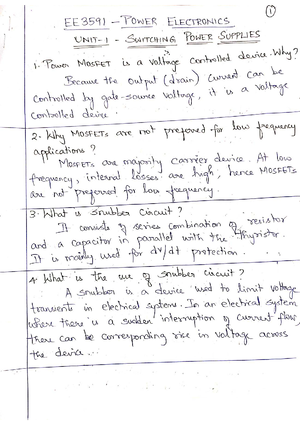 ①
EE3591 - POWER ELECTRONICS
UNIT-1 - SWITCHING POWER SUPPLIES
1. Power MOSFET is a voltage controlled device. Why?
Because the output (drain) current can be
controlled by gate-source voltage, it is a voltage
controlled device.
2. Why MOSFETs are not preferred for low frequency
applications?
MOSFETs are majority carrier device. At low
frequency, internal losses are high, hence MOSFETs
are not preferred for low frequency.
3. What is snubber circuit?
It consists of series combination of resistor
and a capacitor in parallel with the thyristor.
It is mainly used for dv/dt protection.
4. What is the use of snubber circuit?
A snubber is a device used to limit voltage
transients in electrical systems. In an electrical system
where there is a sudden interruption of current flow,
there can be corresponding rise in voltage across
the device...